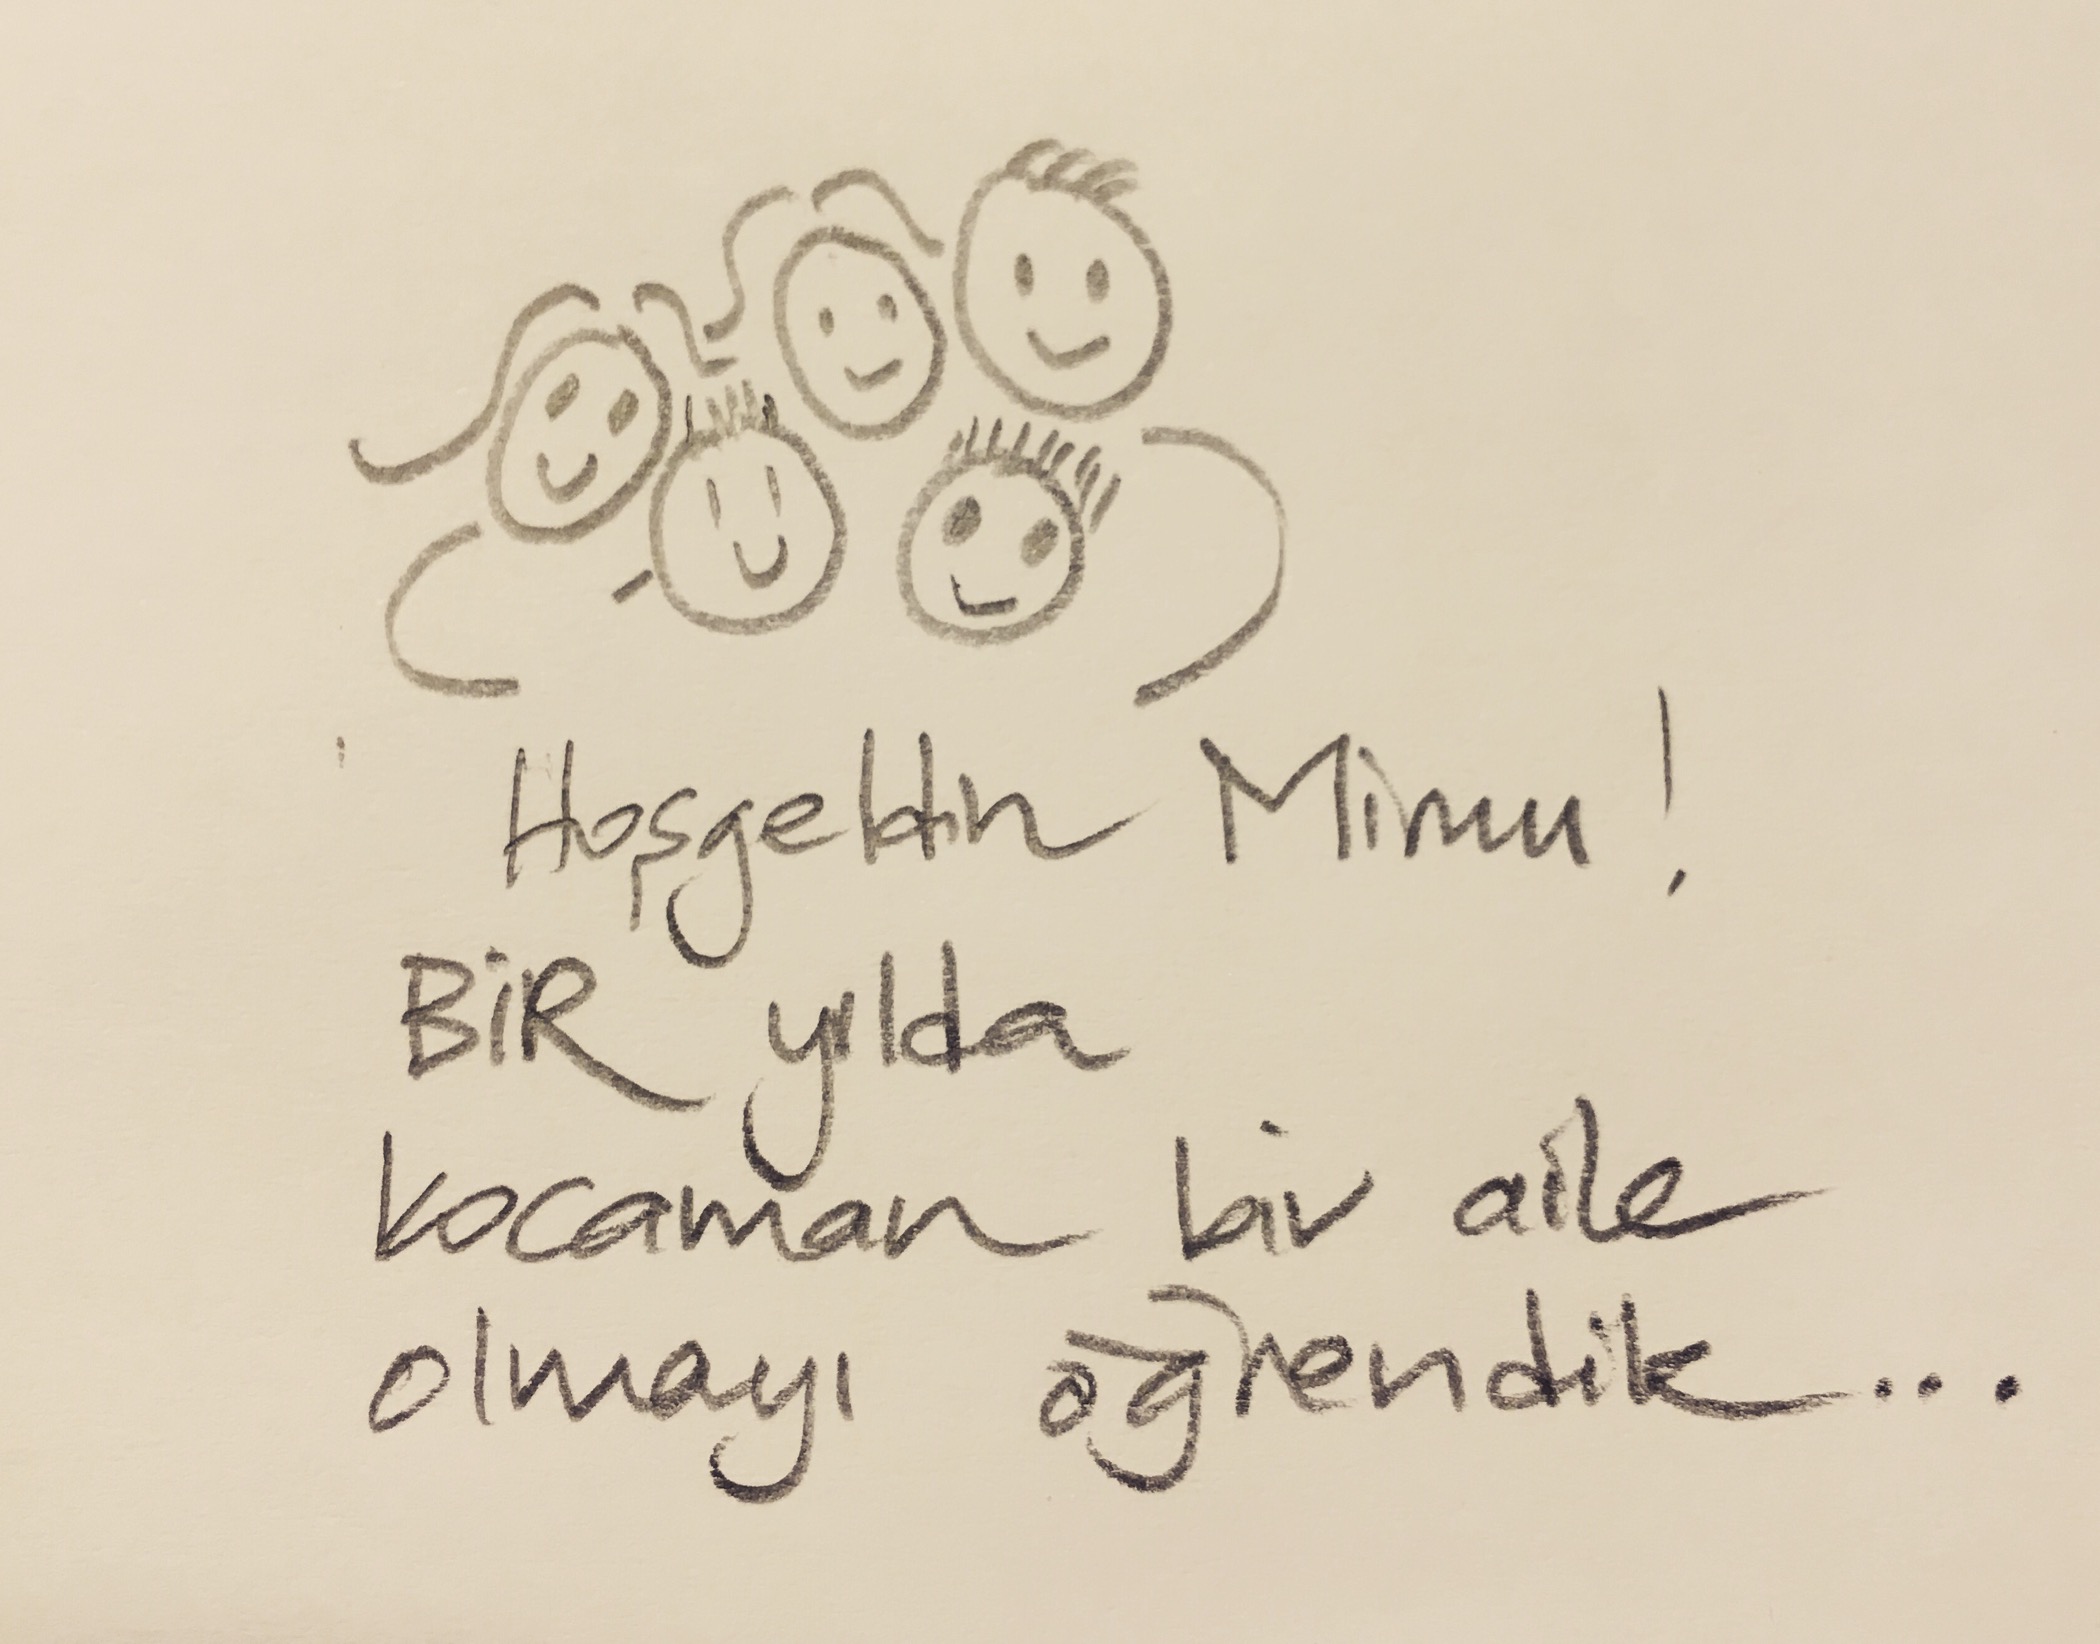 Hoşgeldin Mimu!
BİR yılda
kocaman bir aile
olmayı öğrendik...